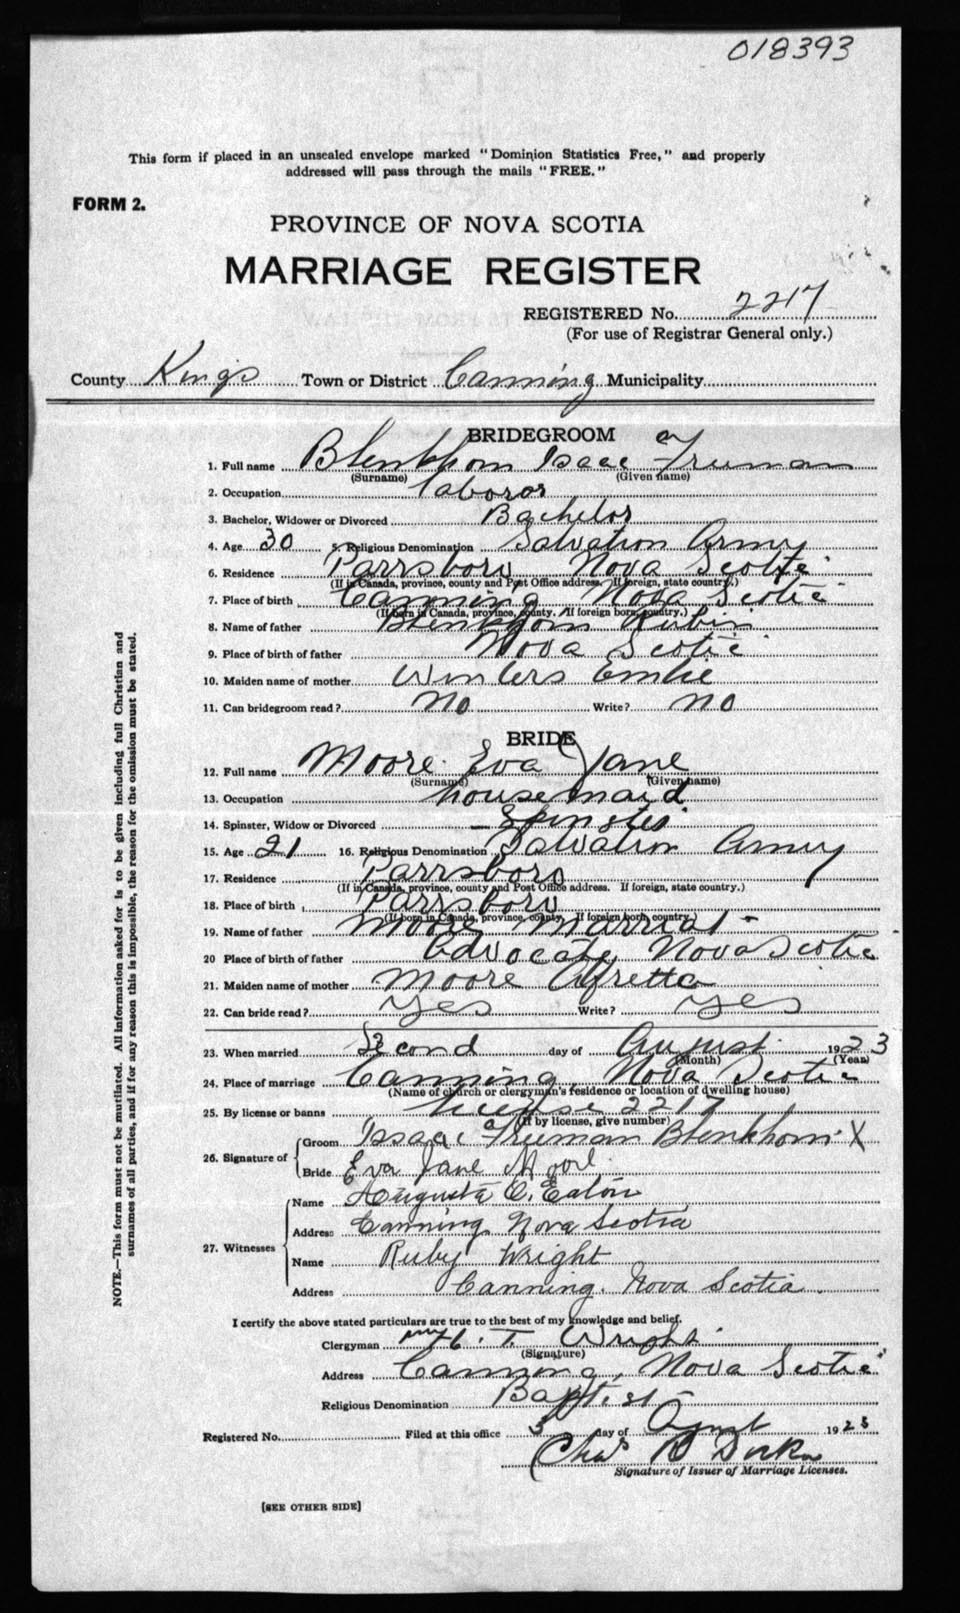 018393
This form if placed in an unsealed envelope marked "Dominion Statistics Free," and properly
addressed will pass through the mails "FREE."
FORM 2.
PROVINCE OF NOVA SCOTIA
MARRIAGE REGISTER
REGISTERED No. 2217
(For use of Registrar General only.)
County Kings Town or District Canning Municipality
BRIDEGROOM
1. Full name Blenkhorn Isaac Freeman
(Surname) (Given name)
2. Occupation laboror
3. Bachelor, Widower or Divorced Bachelor
4. Age 30 5. Religious Denomination Salvation Army
6. Residence Parrsboro Nova Scotia
(If in Canada, province, county and Post Office address. If foreign, state country.)
7. Place of birth Canning Nova Scotia
(If born in Canada, province, county. If foreign born, country.)
8. Name of father Blenkhorn Rubin
9. Place of birth of father Nova Scotia
10. Maiden name of mother Winters Emlie
11. Can bridegroom read? No Write? no
BRIDE
12. Full name Moore Eva Jane
(Surname) (Given name)
13. Occupation housemaid
14. Spinster, Widow or Divorced Spinster
15. Age 21 16. Religious Denomination Salvation Army
17. Residence Parrsboro
(If in Canada, province, county and Post Office address. If foreign, state country.)
18. Place of birth Parrsboro
(If born in Canada, province, county. If foreign born, country.)
19. Name of father Moore
20 Place of birth of father Advocate, Nova Scotia
21. Maiden name of mother Moore Alfretta
22. Can bride read? yes Write? yes
23. When married Second day of August 1923
(Month) (Year)
24. Place of marriage Canning, Nova Scotia
(Name of church or clergyman's residence or location of dwelling house)
25. By license or banns license 2217
(If by license, give number)
26. Signature of Groom Isaac Freeman Blenkhorn X
Bride Eva Jane Moore
27. Witnesses Name Augusta C. Eaton
Address Canning Nova Scotia
Name Ruby Wright
Address Canning. Nova Scotia.
I certify the above stated particulars are true to the best of my knowledge and belief.
Clergyman T. Wright
(Signature)
Address Canning, Nova Scotia
Religious Denomination Baptist
Registered No. Filed at this office 3 day of August 1923
Chas B
Signature of Issuer of Marriage Licenses.
[SEE OTHER SIDE]
NOTE.—This form must not be mutilated. All information asked for is to be given including full Christian and
surnames of all parties, and if for any reason this is impossible, the reason for the omission must be stated.